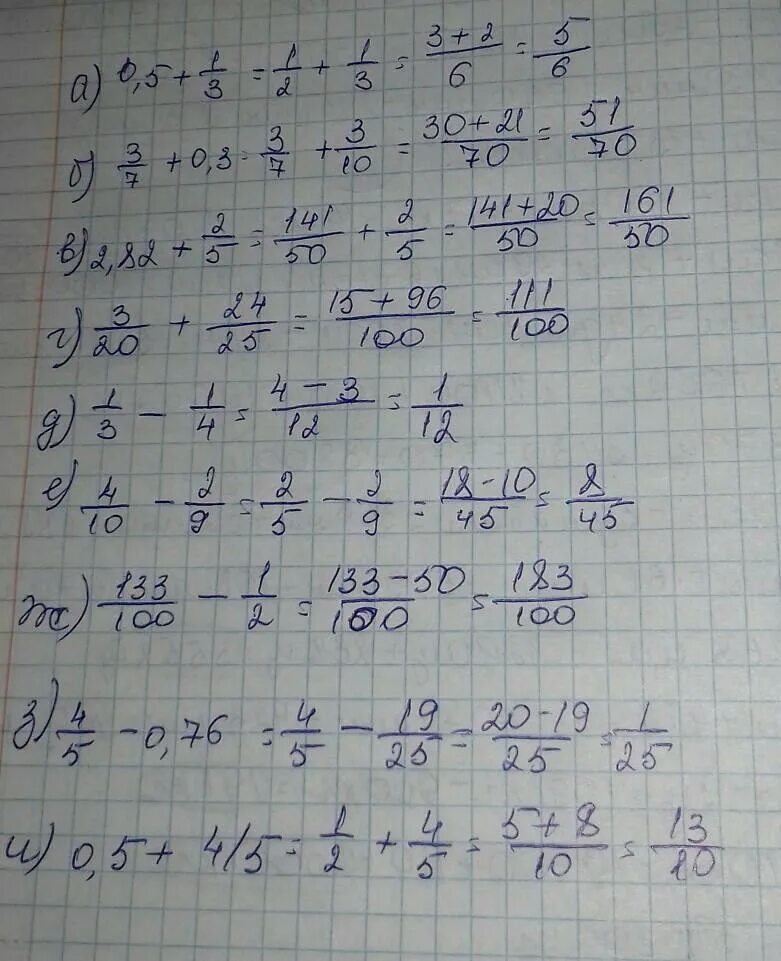 а) 0,5 + 1/3 = 1/2 + 1/3 = (3 + 2)/6 = 5/6
б) 3/7 + 0,3 = 3/7 + 3/10 = (30 + 21)/70 = 51/70
в) 2,82 + 2/5 = 141/50 + 2/5 = (141 + 20)/50 = 161/50
г) 3/20 + 24/25 = (15 + 96)/100 = 111/100
д) 1/3 − 1/4 = (4 − 3)/12 = 1/12
е) 4/10 − 2/9 = 2/5 − 2/9 = (18 − 10)/45 = 8/45
ж) 133/100 − 1/2 = (133 − 50)/100 = 183/100
з) 4/5 − 0,76 = 4/5 − 19/25 = (20 − 19)/25 = 1/25
и) 0,5 + 4/5 = 1/2 + 4/5 = (5 + 8)/10 = 13/10